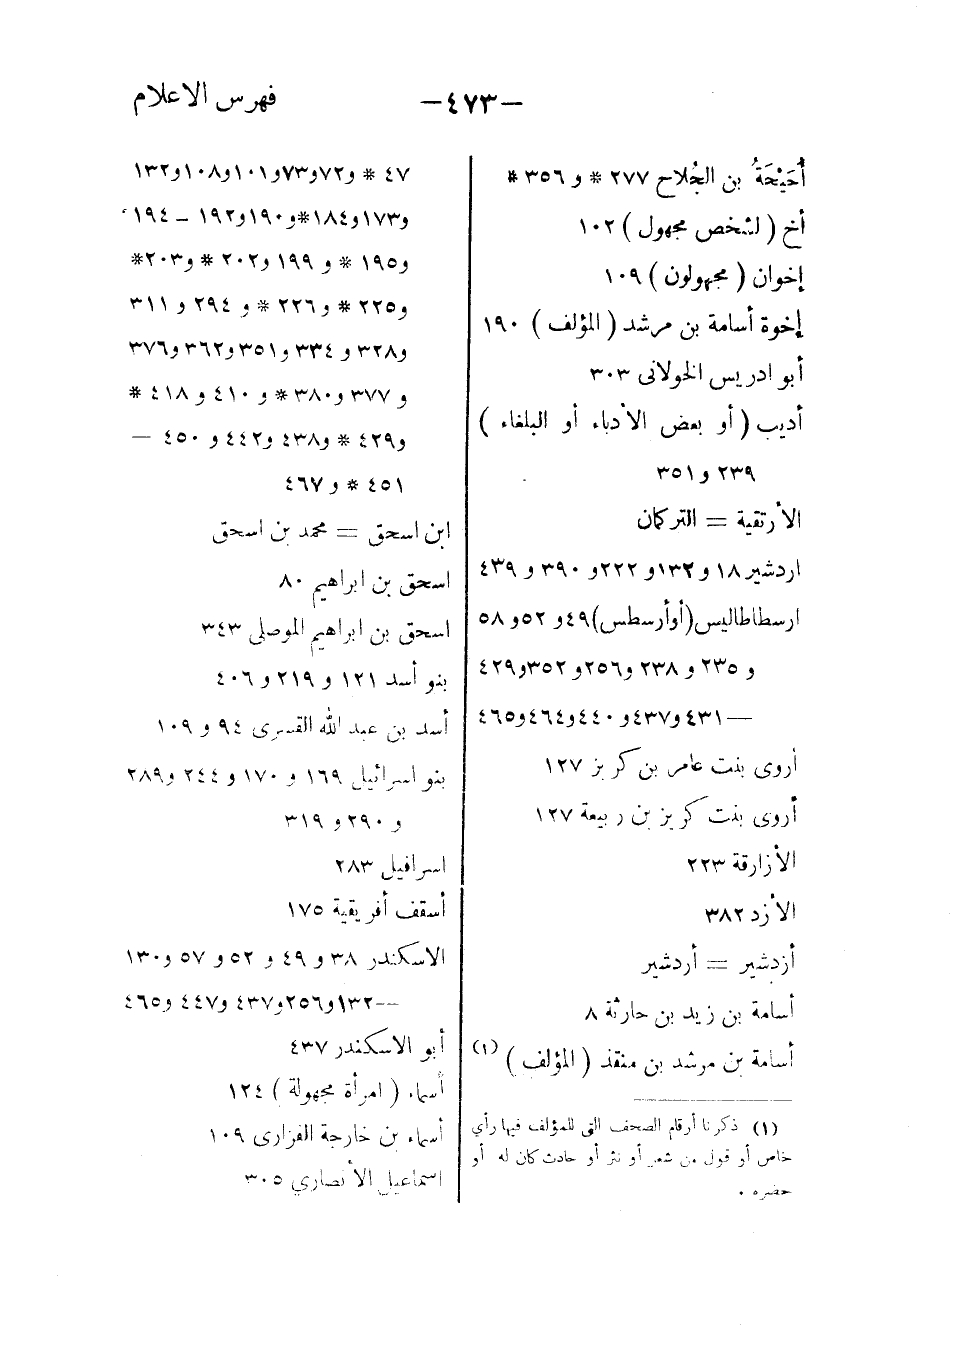 فهرس الاعلام
—٤٧٣—
أُحَيْحَةُ بن الجُلاح ٢٧٧ * و ٣٥٦ *
أخ ( لشخص مجهول ) ١٠٢
إخوان ( مجهولون ) ١٠٩
إخوة أسامة بن مرشد ( المؤلف ) ١٩٠
أبو ادريس الخولانى ٣٠٣
أديب ( أو بعض الأدباء أو البلغاء )
٢٣٩ و ٣٥١
الأرتقية = التركمان
اردشير ١٨ و ١٣٢ و ٢٢٢ و ٣٩٠ و ٤٣٩
ارسطاطاليس (أو أرسطس) ٤٩ و ٥٢ و ٥٨
و ٢٣٥ و ٢٣٨ و ٢٥٦ و ٣٥٢ و ٤٢٩
— ٤٣١ و ٤٣٧ و ٤٤٠ و ٤٦٤ و ٤٦٥
أروى بنت عامر بن كريز ١٢٧
أروى بنت كريز بن ربيعة ١٢٧
الأزارقة ٢٢٣
الأزد ٣٨٢
أزدشير = أردشير
أسامة بن زيد بن حارثة ٨
أسامة بن مرشد بن منقذ ( المؤلف ) (١)
(١) ذكرنا أرقام الصحف التى للمؤلف فيها رأي
خاص أو قول من شعر أو نثر أو حادث كان له أو
حضره .
٤٧ * و ٧٢ و ٧٣ و ١٠١ و ١٠٨ و ١٣٢
و ١٧٣ و ١٨٤ * و ١٩٠ و ١٩٢ — ١٩٤
و ١٩٥ * و ١٩٩ و ٢٠٢ * و ٢٠٣ *
و ٢٢٥ * و ٢٢٦ * و ٢٩٤ و ٣١١
و ٣٢٨ و ٣٣٤ و ٣٥١ و ٣٦٢ و ٣٧٦
و ٣٧٧ و ٣٨٠ * و ٤١٠ و ٤١٨ *
و ٤٢٩ * و ٤٣٨ و ٤٤٢ و ٤٥٠ —
٤٥١ * و ٤٦٧
ابن اسحق = محمد بن اسحق
اسحق بن ابراهيم ٨٠
اسحق بن ابراهيم الموصلى ٣٤٣
بنو أسد ١٢١ و ٢١٩ و ٤٠٦
أسد بن عبد الله القسرى ٩٤ و ١٠٩
بنو اسرائيل ١٦٩ و ١٧٠ و ٢٤٤ و ٢٨٩
و ٢٩٠ و ٣١٩
اسرافيل ٢٨٣
أسقف أفريقية ١٧٥
الاسكندر ٣٨ و ٤٩ و ٥٢ و ٥٧ و ١٣٠
—١٣٢ و ٢٥٦ و ٤٣٧ و ٤٤٧ و ٤٦٥
أبو الاسكندر ٤٣٧
أسماء ( امرأة مجهولة ) ١٢٤
أسماء بن خارجة الفزارى ١٠٩
اسماعيل الأنصاري ٣٠٥